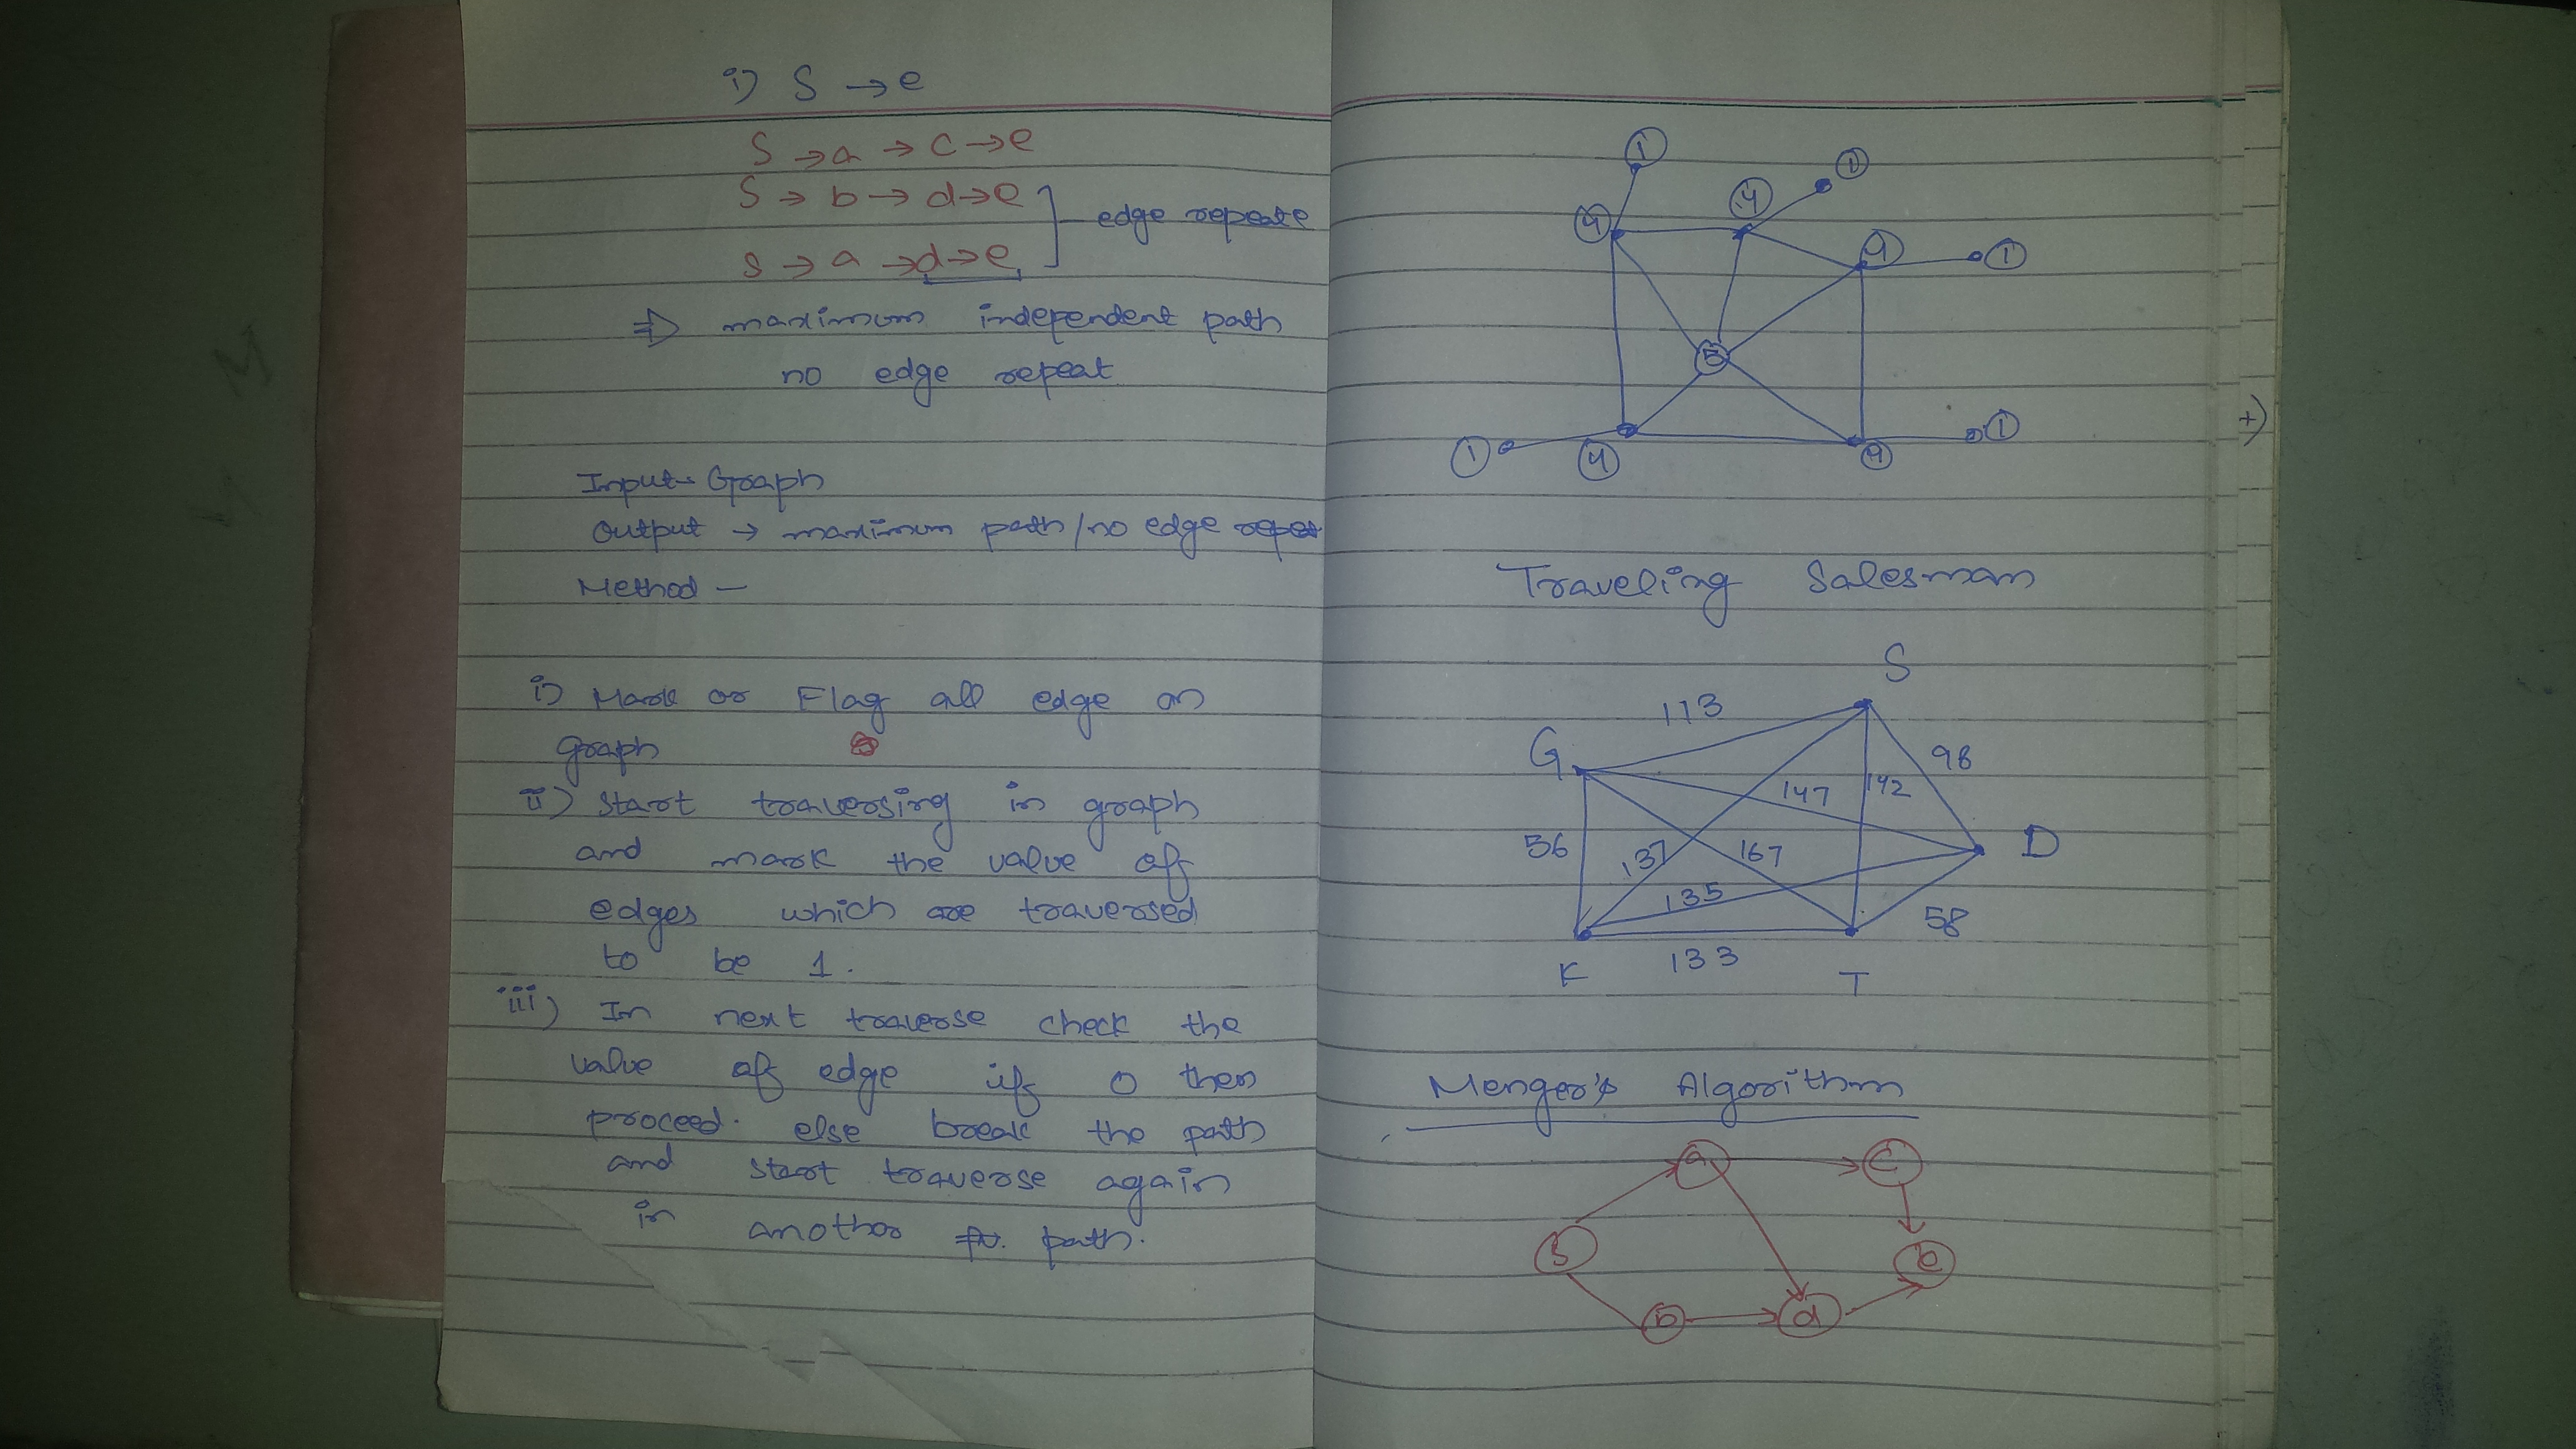 i) S → e
S → a → c → e
S → b → d → e
edge repeate
S → a → d → e
⇒ maximum independent path
no edge repeat
Input → Graph
Output → maximum path/no edge repet
Method —
i) Mark or Flag all edge on
graph
ii) Start traversing in graph
and mark the value of
edges which are traversed
to be 1.
iii) In next traverse check the
value of edge if 0 then
proceed. else break the path
and start traverse again
in another path.
1
1
4
4
4
1
5
1
4
4
1
Traveling Salesman
S
113
G
98
147
142
56
137
167
D
135
58
133
K
T
Menger's Algorithm
a
c
S
e
b
d
+)